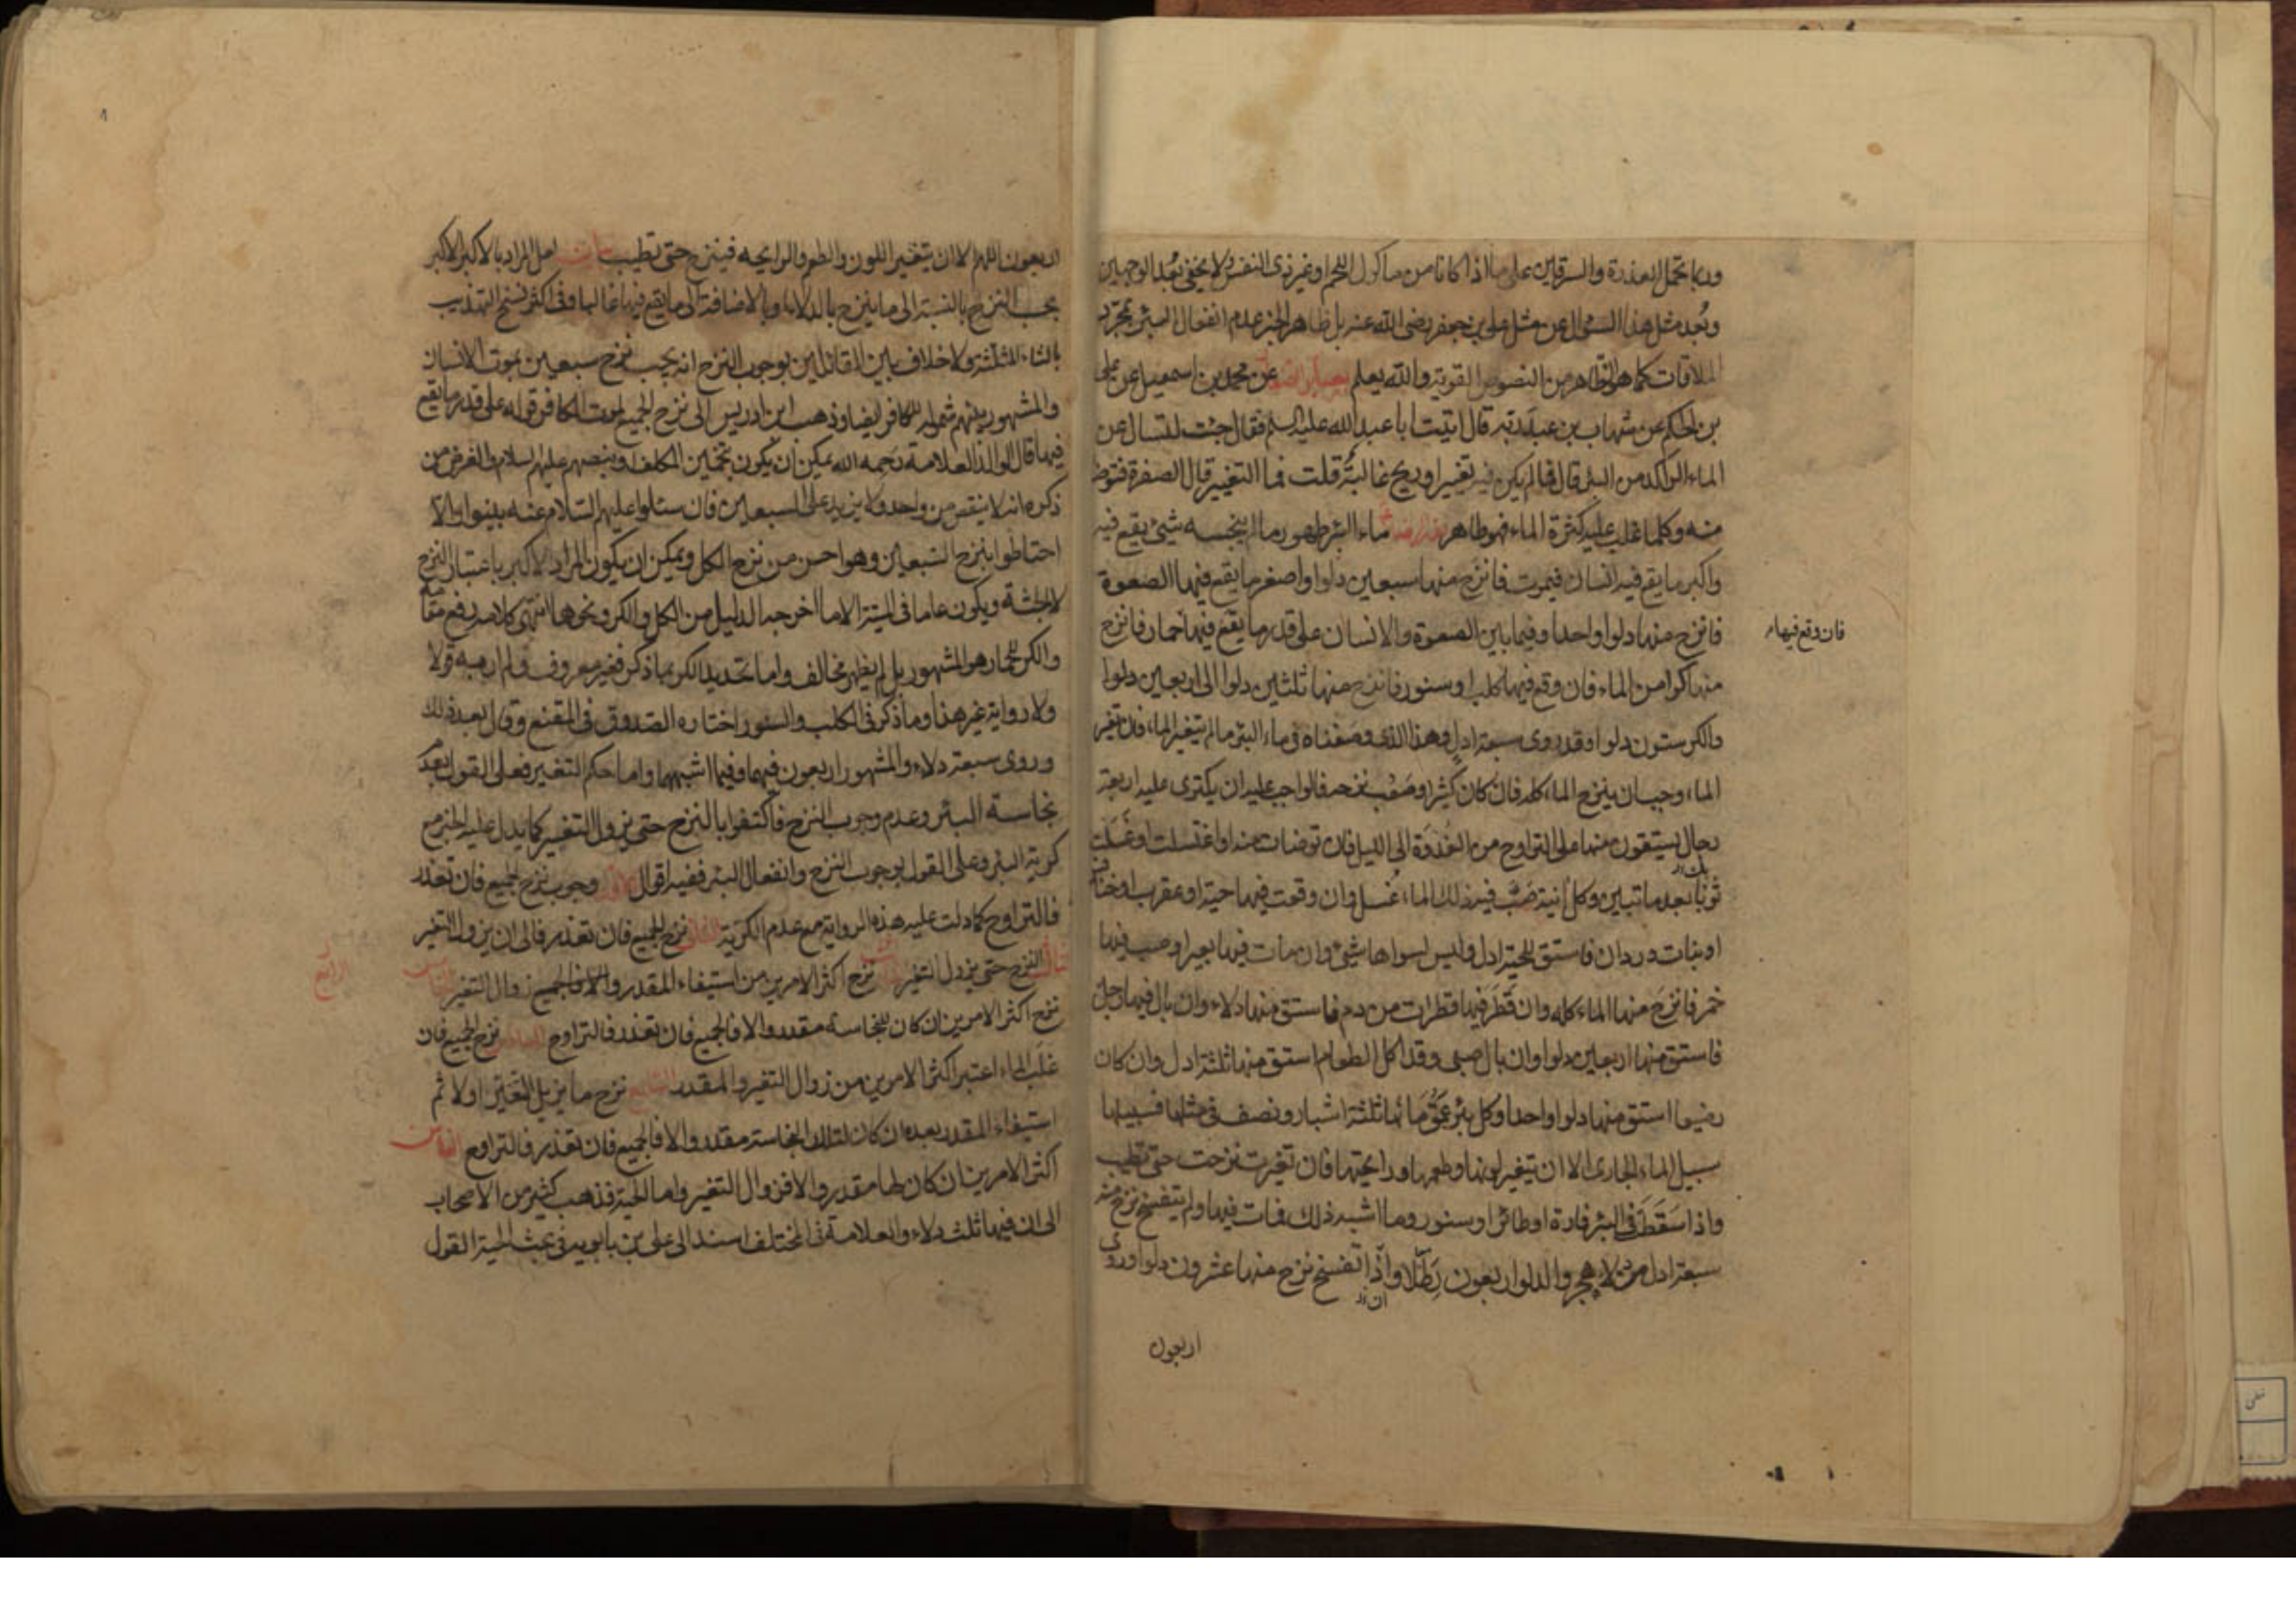 وربما تحمل العذرة والسرقين على ما اذا كانا من ماكول اللحم او غير ذى النفس ولا يخفى بُعد الوجهين
وبُعد مثل هذا السؤال عن مثل على بن جعفر رضى الله عنه بل ظاهر الخبر عدم انفعال البئر بمجرد
الملاقات كما هو الظاهر من النصوص القوية والله يعلم بصائر الدرجات عن محمد بن اسمعيل عن على
بن الحكم عن شهاب بن عبد ربه قال اتيت ابا عبد الله عليه السلم فقال جئت لتسال عن
الماء الراكد من البئر قال فما لم يكن فيه تغيير او ريح غالبة قلت فما التغيير قال الصفرة فتوضا
منه وكلما غلب عليه كثرة الماء فهو طاهر ماء البئر طهور ما لم ينجسه شيئ يقع فيه
واكبر ما يقع فيه انسان فيموت فانزح منها سبعين دلوا واصغر ما يقع فيها الصعوة
فانزح منها دلوا واحدا وفيما بين الصعوة والانسان على قدر ما يقع فيها حمار فانزح
فان وقع فيها
منها كرا من الماء فان وقع فيها كلب او سنور فانزح منها ثلثين دلوا الى اربعين دلوا
والكر ستون دلوا وقد روى سبعة ادل وهذا الذى وصفناه فى ماء البئر ما لم يتغير الماء فان تغير
الماء وجب ان ينزح الماء كله فان كان كثيرا وصعب نزحه فالواجب عليه ان يكترى عليه اربعة
رجال يستقون منها على التراوح من الغدوة الى الليل فان توضات منه او اغتسلت او غسلت
ثوبا بعد ما تبين وكل انية صُبّ فيه ذلك الماء غُسل وان وقعت فيها حية او عقرب او خنافس
او بنات وردان فاستق للحية ادل وليس لسواها شيئ وان مات فيها بعير او صب فيها
خمر فانزح منها الماء كله وان قطر فيها قطرات من دم فاستق منها دلاء وان بال فيها رجل
فاستق منها اربعين دلوا وان بال صبى وقد اكل الطعام استق منها ثلثة ادل وان كان
رضيعا استق منها دلوا واحدا وكل بئر عمق مائها ثلثة اشبار ونصف فى مثلها فسبيلها
سبيل الماء الجارى الا ان يتغير لونها وطعمها ورايحتها فان تغيرت نزحت حتى تطيب
واذا سقط فى البئر فارة او طائر او سنور وما اشبه ذلك فمات فيها ولم يتفسخ نزح منه
سبعة ادل من دلاء هجر والدلو اربعون رطلا واذا تفسخ نزح منها عشرون دلوا وروى
اربعون
اربعون اللهم الا ان يتغير اللون والطعم والرايحه فينزح حتى تطيب بيان لعل المراد بالاكبر الاكبر
بحسب النزح بالنسبة الى ما ينزح بالدلاء وبالاضافة الى ما يقع فيها غالبا وفى اكثر نسخ التهذيب
بالثاء المثلثة ولا خلاف بين القائلين بوجوب النزح انه يجب نزح سبعين بموت الانسان
والمشهور بينهم شموله للكافر ايضا وذهب ابن ادريس الى نزح الجميع لموت الكافر قوله على قدر ما يقع
فيها قال الوالد العلامة رحمه الله يمكن ان يكون بتخمين المكلف او بنصهم عليهم السلام والغرض من
ذكره انه لا ينقص من واحد ولا يزيد على السبعين فان سئلوا عليهم السلام عنه بينوا والا
احتاطوا بنزح السبعين وهو احسن من نزح الكل ويمكن ان يكون المراد الاكبر باعتبار النزح
لا الجثة ويكون عاما فى الميتة الا ما اخرجه الدليل من الكل والكر ونحوهما انتهى كلامه رفع مقامه
والكر للحمار هو المشهور بل لم يظهر مخالف واما تحديد الكر بما ذكر فغير معروف ولم ار به قولا
ولا رواية غير هذا وما ذكر فى الكلب والسنور اختاره الصدوق فى المقنع وقال بعد ذلك
وروى سبعة دلاء والمشهور اربعون فيهما وفيما اشبههما واما حكم التغير فعلى القول بعدم
نجاسة البئر وعدم وجوب النزح فاكتفوا بالنزح حتى يزول التغير كما يدل عليه الخبر مع
كرية البئر وعلى القول بوجوب النزح وانفعال البئر ففيه اقوال الاول وجوب نزح الجميع فان تعذر
فالتراوح كما دلت عليه هذه الرواية مع عدم الكرية الثانى نزح الجميع فان تعذر فالى ان يزول التغير
الثالث النزح حتى يزول التغير نزح اكثر الامرين من استيفاء المقدر وزوال التغير الخامس
الرابع
نزح اكثر الامرين ان كان للنجاسة مقدر والا فالجميع فان تعذر فالتراوح السادس نزح الجميع فان
غلب الماء اعتبر اكثر الامرين من زوال التغير والمقدر السابع نزح ما يزيل التغير اولا ثم
استيفاء المقدر بعده ان كان لتلك النجاسة مقدر والا فالجميع فان تعذر فالتراوح الثامن
اكثر الامرين ان كان لها مقدر والا فزوال التغير واما الحية فذهب كثير من الاصحاب
الى ان فيها ثلث دلاء والعلامة فى المختلف اسند الى على بن بابويه فى بحث الحية القول